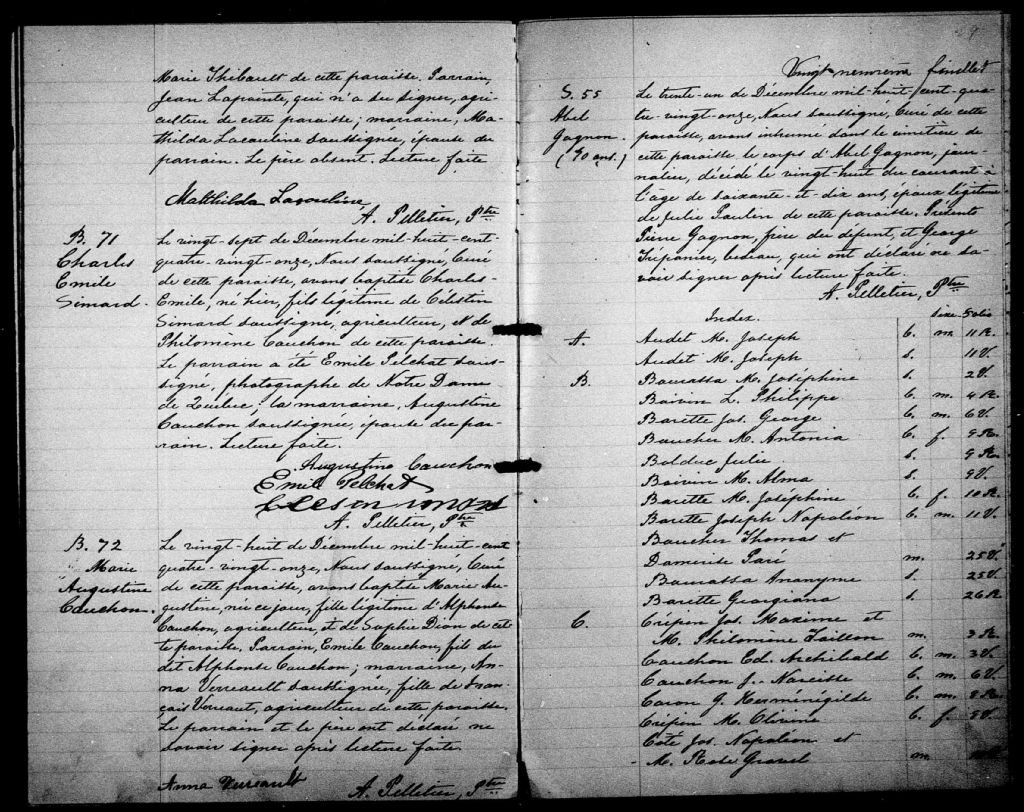 Marie Thibault de cette paroisse. Parrain,
Jean Lapointe, qui n'a su signer, agri-
culteur de cette paroisse; marraine, Ma-
thilda Lacouline soussignée, épouse du
parrain. Le père absent. Lecture faite
Matthilda Lacouline
A. Pelletier, Ptre
B. 71
Charles
Emile
Simard.
Le vingt-sept de Décembre mil-huit-cent-
quatre-vingt-onze, Nous soussigné, Curé
de cette paroisse, avons baptisé Charles-
Emile, né hier, fils légitime de Célestin
Simard soussigné, agriculteur, et de
Philomène Cauchon de cette paroisse.
Le parrain a été Emile Pelchat sous-
signé, photographe de Notre Dame
de Québec; la marraine, Augustine
Cauchon soussignée, épouse du par-
rain. Lecture faite.
Augustine Cauchon
Emile Pelchat
A. Pelletier, Ptre
B. 72
Marie
Augustine
Cauchon.
Le vingt-huit de Décembre mil-huit-cent
quatre-vingt-onze, Nous soussigné, Curé
de cette paroisse, avons baptisé Marie Au-
gustine, née ce jour, fille légitime d'Alphonse
Cauchon, agriculteur, et de Sophie Dion de cet-
te paroisse, Parrain, Emile Cauchon, fils du
dit Alphonse Cauchon; marraine, An-
na Verreault soussignée, fille de Fran-
çais Verreaut, agriculteur de cette paroisse.
Le parrain et le père ont déclaré ne
savoir signer après lecture faite.
Anna Verreault
A. Pelletier, Ptre
29
Vingt-neuvième feuillet
S. 55
Abel
Gagnon.
(70 ans.)
Le trente-un de Décembre mil-huit-cent-qua-
tre-vingt-onze, Nous soussigné, Curé de cette
paroisse, avons inhumé dans le cimetière de
cette paroisse le corps d'Abel Gagnon, jour-
nalier, décédé le vingt-huit du courant à
l'âge de soixante-et-dix ans, époux légitime
de Julie Poulin de cette paroisse. Présents
Pierre Gagnon, frère du défunt, et George
Trépanier, bedeau, qui ont déclaré ne sa-
voir signer après lecture faite.
A. Pelletier, Ptre
Index. Sexe Folio
A. Audet M. Joseph b. m. 11 R.
Audet M. Joseph s. 11 V.
B. Bourassa M. Joséphine s. 2 V.
Boivin L. Philippe b. m. 4 R.
Barette Jos. George b. m. 6 V.
Boucher M. Antonia b. f. 9 R.
Bolduc Julie s. 9 R.
Boivin M. Alma s. 9 V.
Barette M. Joséphine b. f. 10 R.
Barette Joseph Napoléon b. m. 11 V.
Boucher Thomas et
Damerise Paré m. 25 V.
Bourassa Anonyme s. 25 V.
Barette Georgiana s. 26 R.
C. Crépon Jos. Maxime et
M. Philomène m. 3 R.
Cauchon Ed. Archibald b. m. 3 V.
Cauchon J. Narcisse b. m. 6 V.
Caron G. Herménégilde b. m. 8 R.
Crépin M. b. f. 8 V.
Côté Jos. Napoléon et
M. Rose Gravel m.